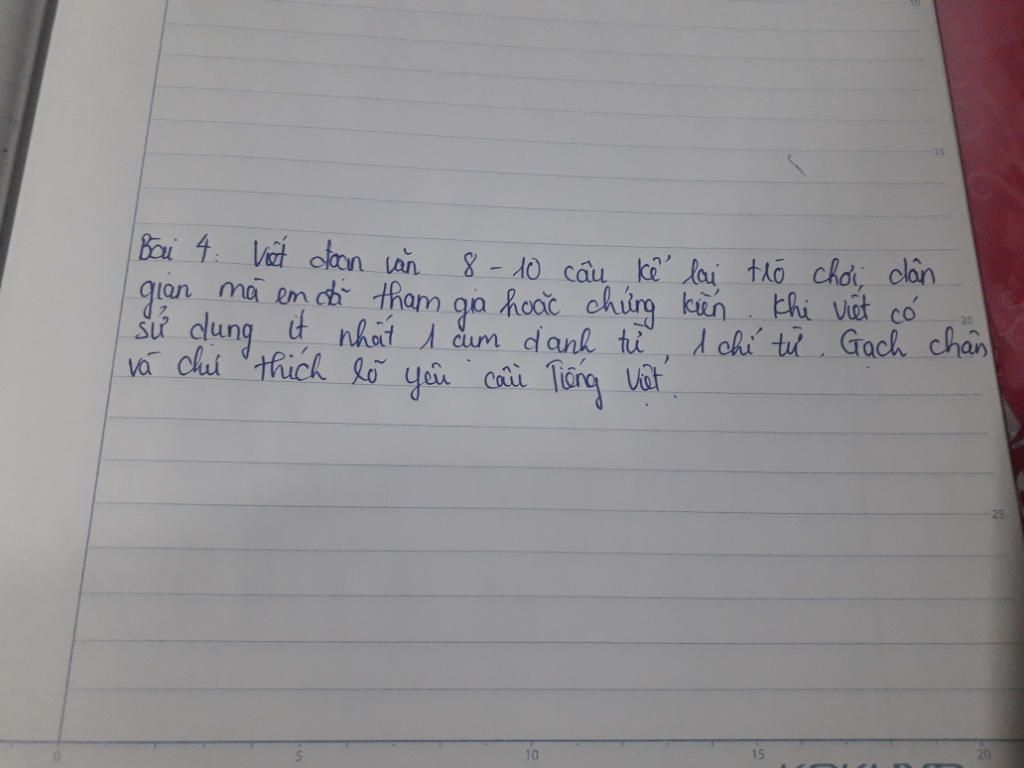 10
15
Bài 4: Viết đoạn văn 8 - 10 câu kể lại trò chơi dân
gian mà em đã tham gia hoặc chứng kiến. Khi viết có
20
sử dụng ít nhất 1 cụm danh từ, 1 chỉ từ. Gạch chân
và chú thích rõ yêu cầu Tiếng Việt.
25
0 5 10 15 20